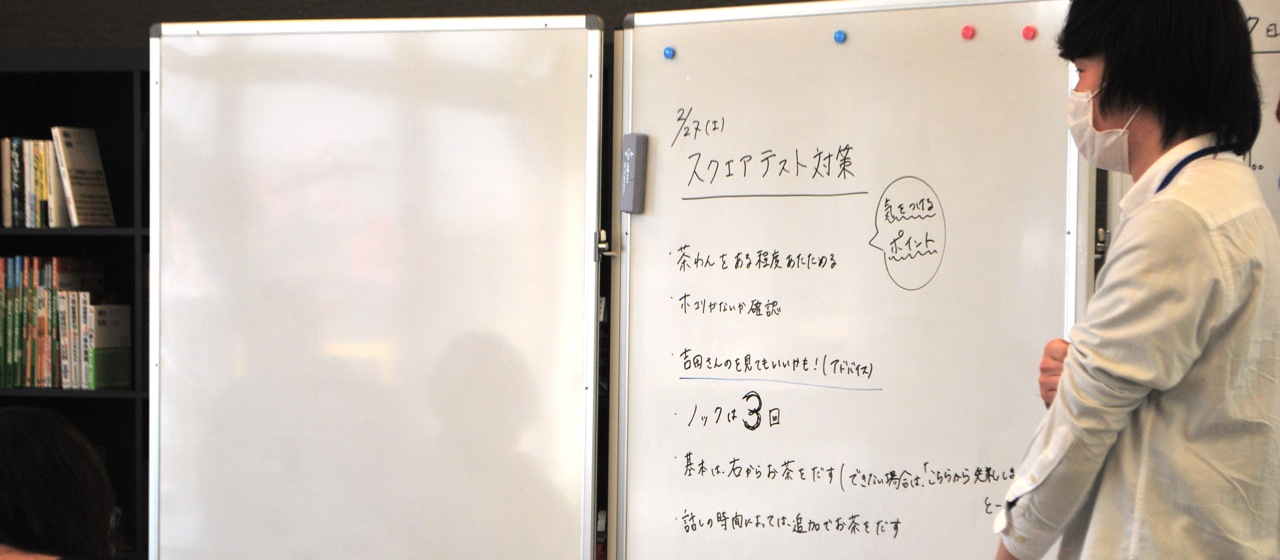 2/27(土)
スクエアテスト対策
気をつける
ポイント
・茶わんをある程度あたためる
・ホコリがないか確認
・吉田さんのを見てもいいかも!(アドバイス)
・ノックは3回
・基本は、右からお茶をだす(できない場合は、「こちらから失礼しま
と
・話しの時間によっては、追加でお茶をだす